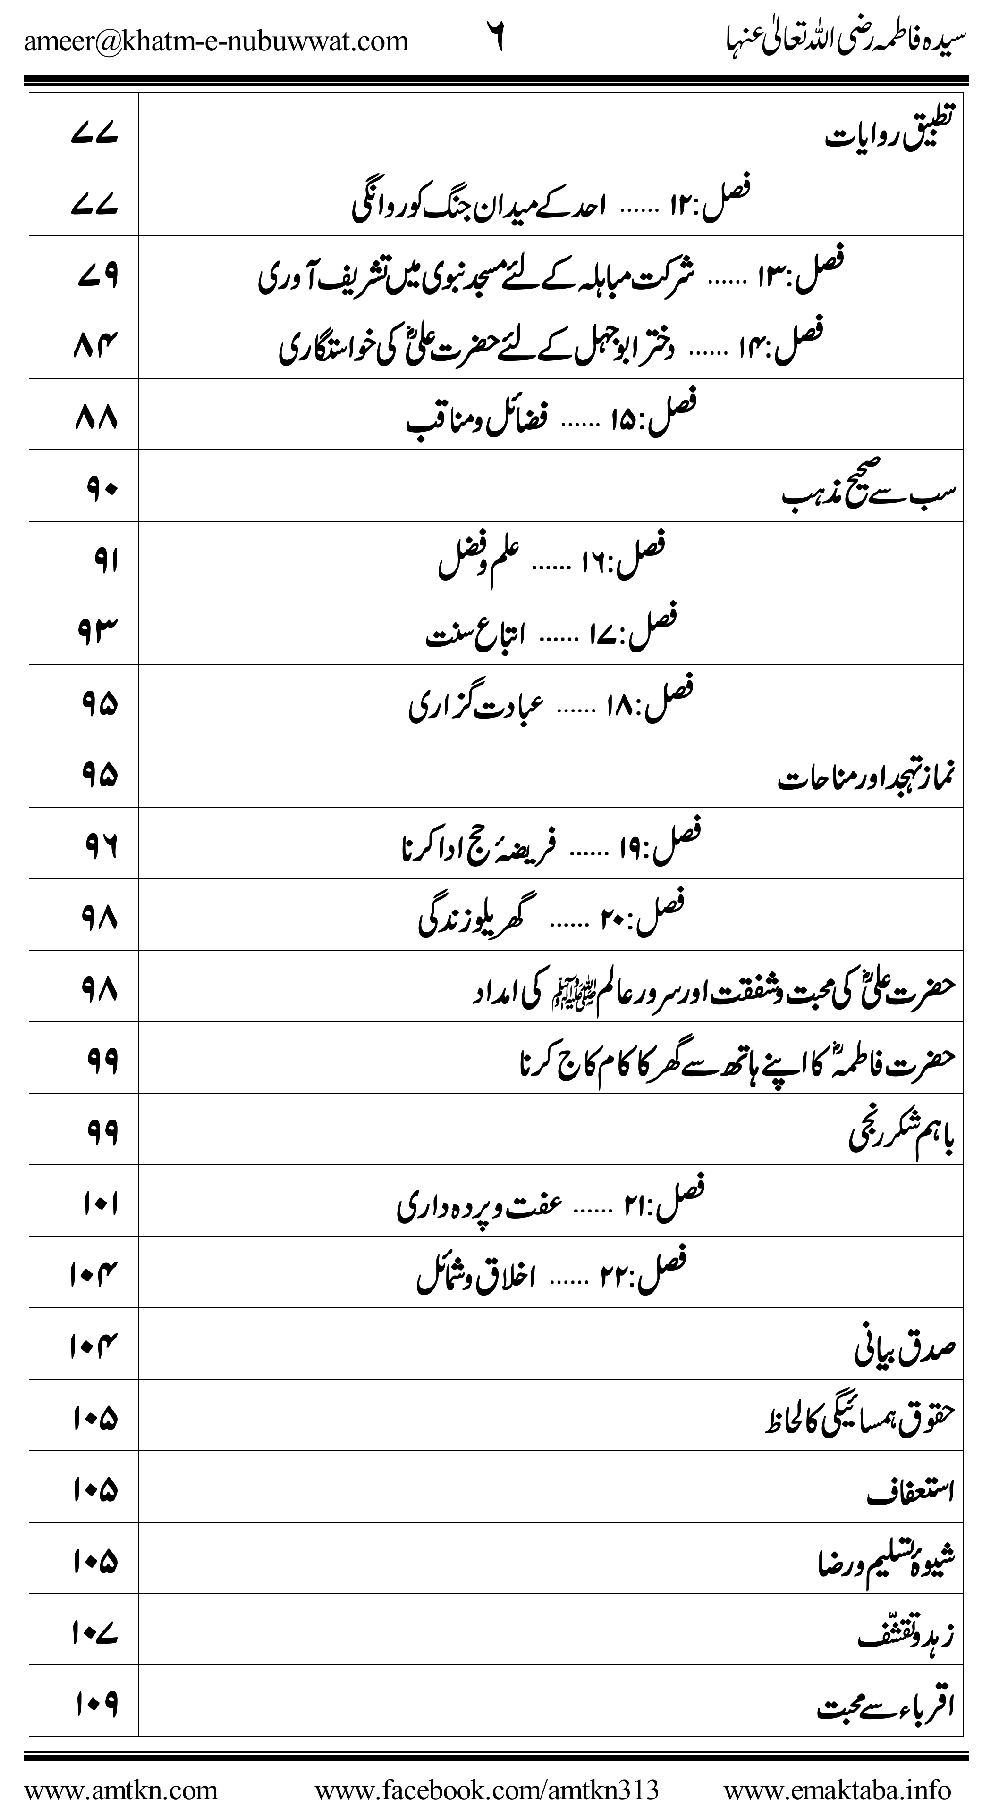 سیدہ فاطمہ رضی اللہ تعالیٰ عنہا ۶ ameer@khatm-e-nubuwwat.com
تطبیق روایات ۷۷
فصل:۱۲ ...... احد کے میدان جنگ کو روانگی ۷۷
فصل:۱۳ ...... شرکت مباہلہ کے لئے مسجد نبوی میں تشریف آوری ۷۹
فصل:۱۴ ...... دختر ابوجہل کے لئے حضرت علیؓ کی خواستگاری ۸۴
فصل:۱۵ ...... فضائل ومناقب ۸۸
سب سے صحیح مذہب ۹۰
فصل:۱۶ ...... علم وفضل ۹۱
فصل:۱۷ ...... اتباع سنت ۹۳
فصل:۱۸ ...... عبادت گزاری ۹۵
نماز تہجد اور مناحات ۹۵
فصل:۱۹ ...... فریضۂ حج ادا کرنا ۹۶
فصل:۲۰ ...... گھریلو زندگی ۹۸
حضرت علیؓ کی محبت وشفقت اور سرور عالم ﷺ کی امداد ۹۸
حضرت فاطمہؓ کا اپنے ہاتھ سے گھر کا کام کاج کرنا ۹۹
باہم شکر رنجی ۹۹
فصل:۲۱ ...... عفت وپردہ داری ۱۰۱
فصل:۲۲ ...... اخلاق وشمائل ۱۰۴
صدق بیانی ۱۰۴
حقوق ہمسائیگی کا لحاظ ۱۰۵
استعفاف ۱۰۵
شیوۂ تسلیم ورضا ۱۰۵
زہد وتقشّف ۱۰۷
اقرباء سے محبت ۱۰۹
www.amtkn.com www.facebook.com/amtkn313 www.emaktaba.info